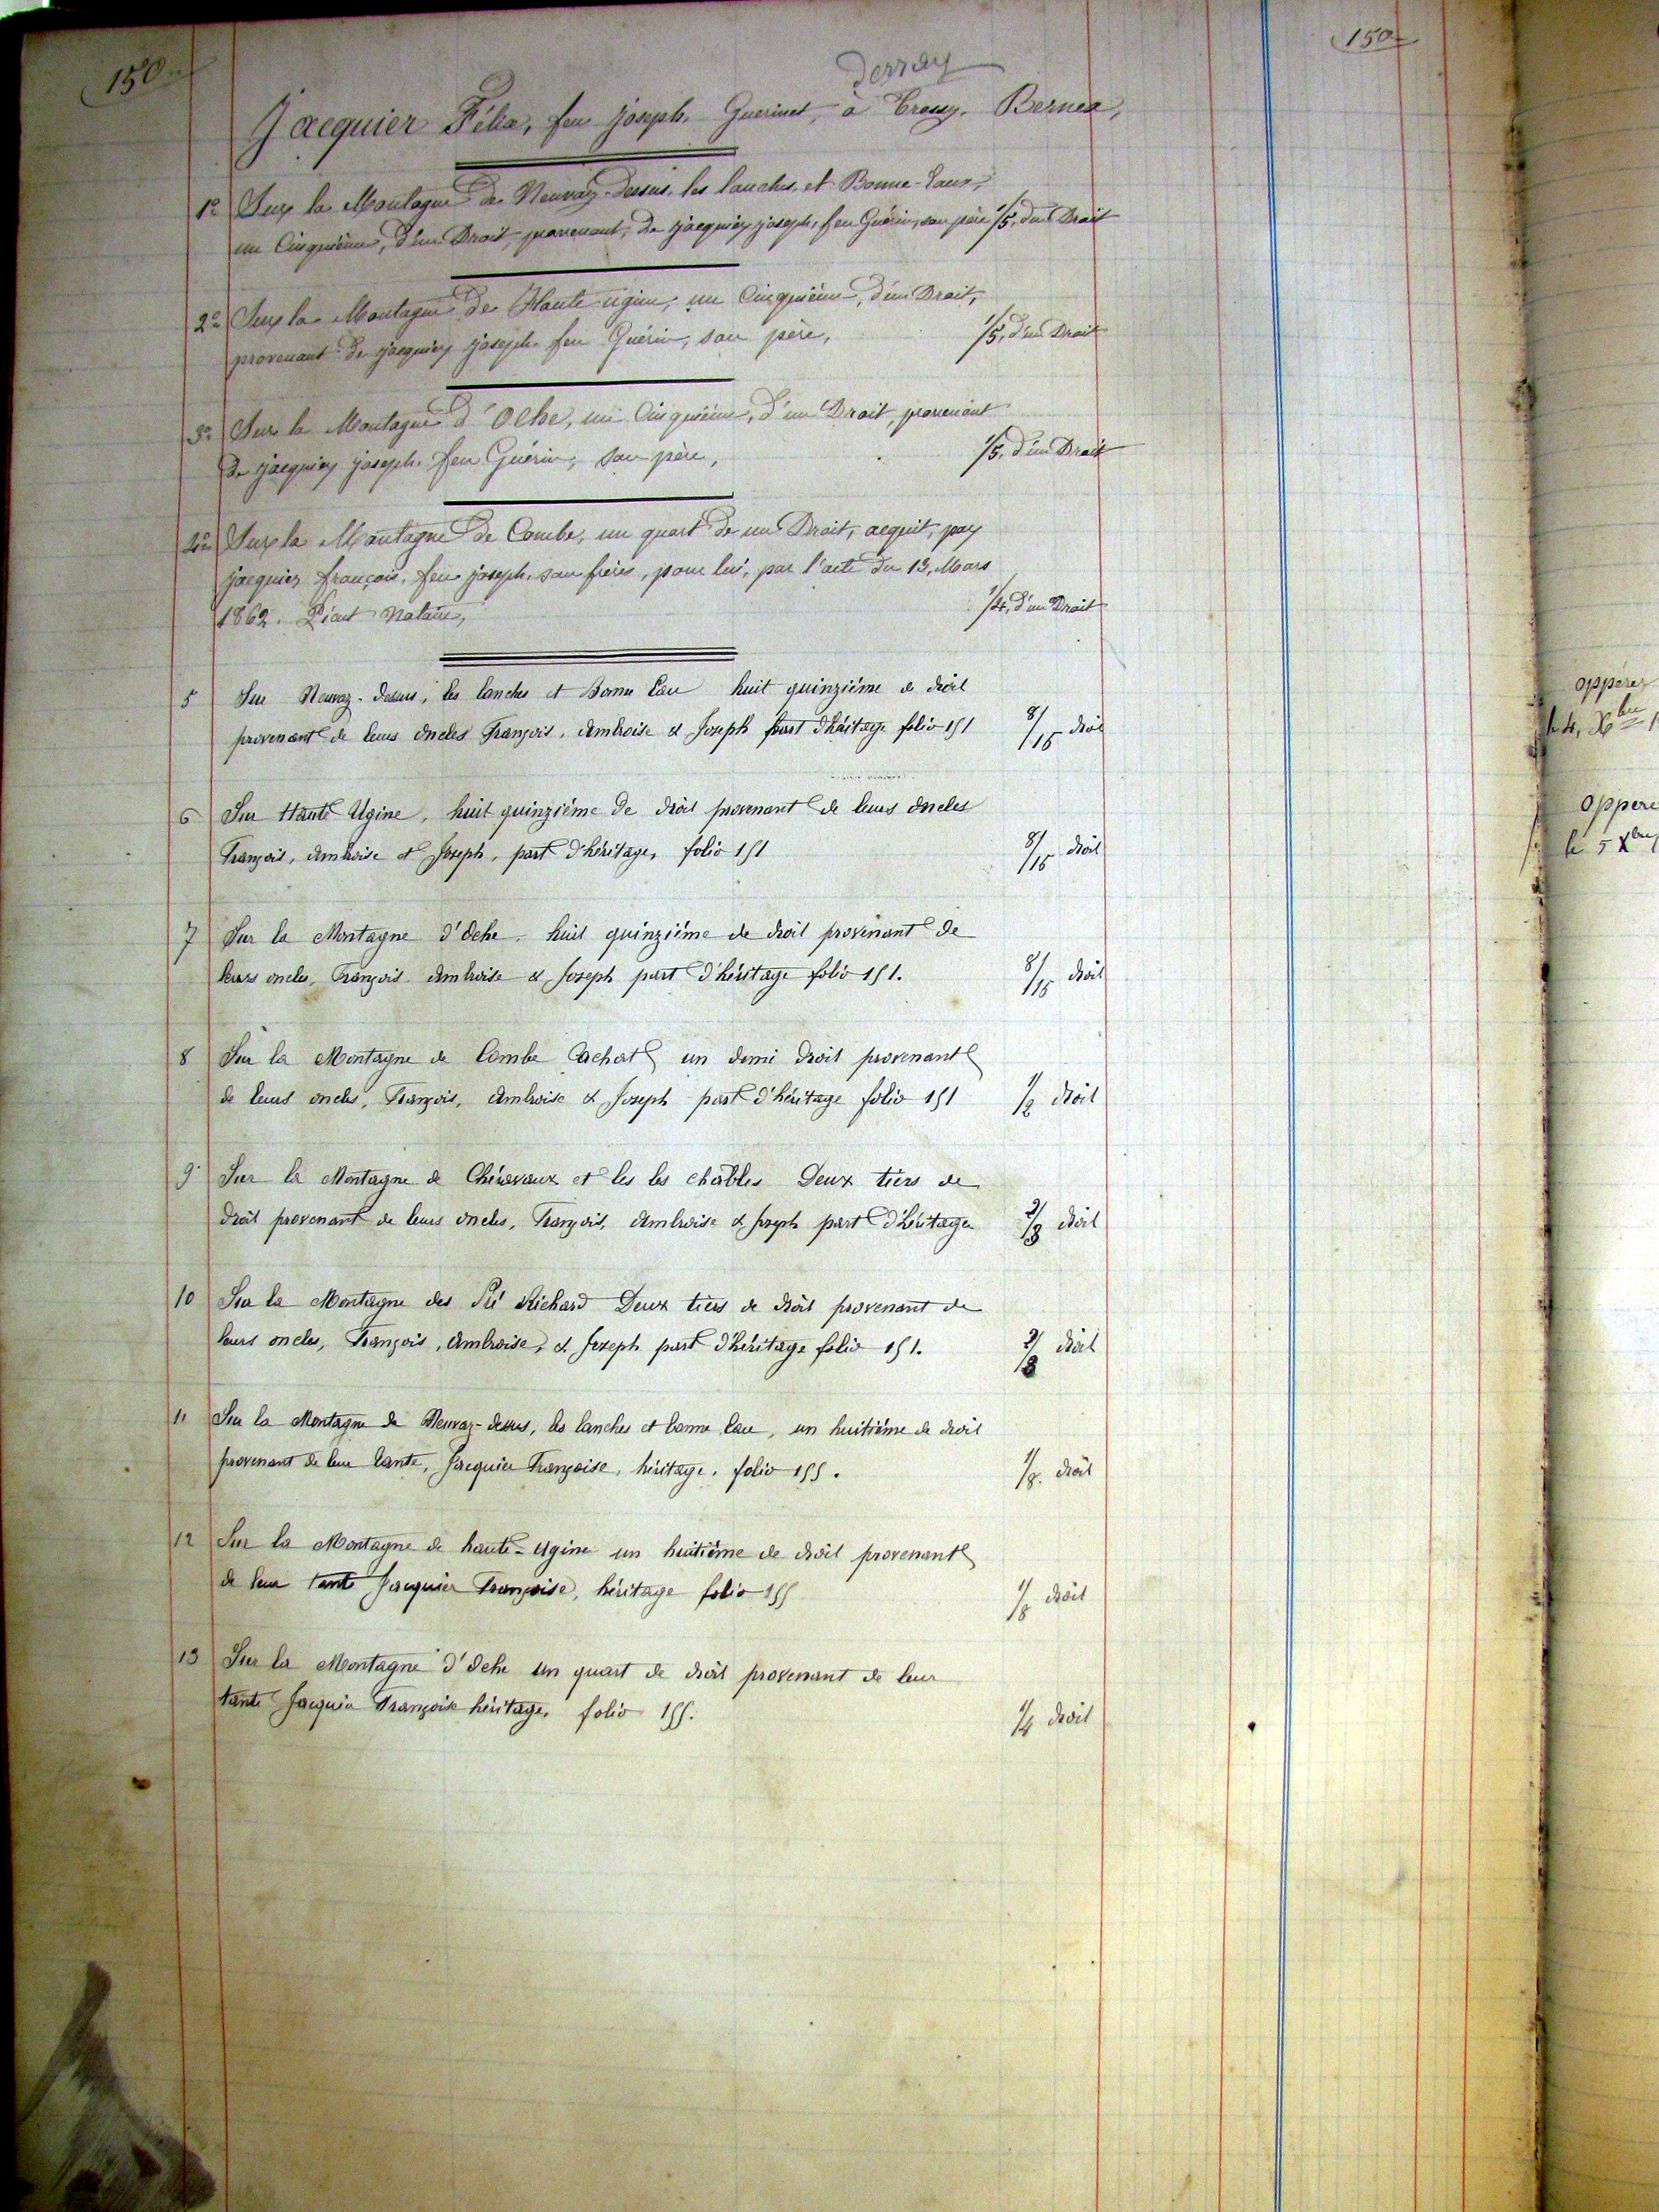 150
150
Jacquier Félix, feu joseph, Guerinet, à Creusy. Bernex,
1º Sur la Montagne de Neuvaz-Dessus, les lanches, et Bonne-Eaux,
un Cinquième, d'un Droit, provenant, de jacquier joseph, feu Guérin, son père 1/5, d'un Droit
2º Sur la Montagne de Haute-ugine, un Cinquième, d'un Droit,
provenant de jacquier joseph. feu Guérin, son père, 1/5, d'un Droit
3º Sur la Montagne d'Oche, un Cinquième, d'un Droit, provenant
de jacquier joseph. feu Guérin, son père, 1/5. d'un Droit
4º Sur la Montagne de Combe, un quart de un Droit, acquit, par
jacquier françois, feu joseph, son frère, pour lui, par l'acte du 13, Mars
1862. notaire, 1/4, d'un Droit
5 Sur Neuvaz-dessus, les lanches et Bonne Eau huit quinzième de droit
provenant de leurs oncles François, Ambroise & Joseph part d'héritage folio 151 8/15 droit
6 Sur Haute Ugine, huit quinzième de droit provenant de leurs oncles
François, Ambroise et Joseph, part d'héritage, folio 151 8/15 droit
7 Sur la Montagne d'Oche. huit quinzième de droit provenant de
leurs oncles, François Ambroise & Joseph part d'héritage folio 151. 8/15 droit
8 Sur la Montagne de Combe Cachat un demi droit provenant
de leurs oncles, François, Ambroise & Joseph part d'héritage folio 151 1/2 droit
9 Sur la Montagne de et les les chables Deux tiers de
droit provenant de leurs oncles, François, Ambroise & Joseph part d'héritage 2/3 droit
10 Sur la Montagne des Pré Richard Deux tiers de droit provenant de
leurs oncles, François, Ambroise, & Joseph part d'héritage folio 151. 2/3 droit
11 Sur la Montagne de Neuvaz-dessus, les lanches et bonne Eau, un huitième de droit
provenant de leur tante, Jacquier Françoise, héritage, folio 155. 1/8. droit
12 Sur la Montagne de haute-Ugine un huitième de droit provenant
de leur tante Jacquier Françoise, héritage folio 155 1/8 droit
13 Sur la Montagne d'Oche un quart de droit provenant de leur
tante Jacquier Françoise héritage, folio 155. 1/4 droit